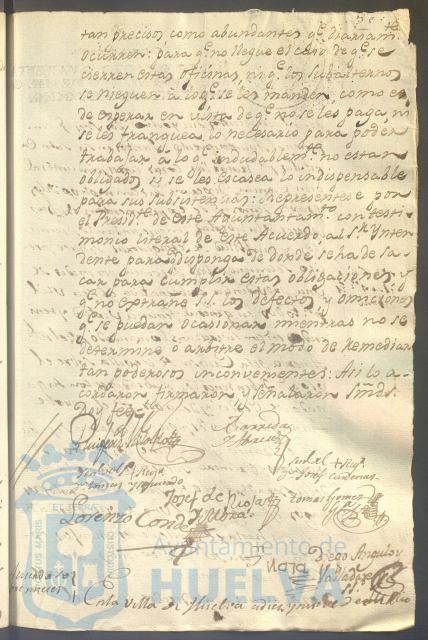 tan precisos como abundantes qe. diariamte.
ocurren: para qe. no llegue el caso de qe. se
cierren estas oficinas, ni qe. los subalternos
se nieguen à lo qe. se les mande, como es
de esperar en vista de qe. no se les paga, ni
se les franquea lo necesario para poder
trabajar à lo qe. indudablemte. no estan
obligados si se les escasea lo indispensable
para sus subsistencias: Represéntese por
el Presidte. de este Ayuntamto. con testi
monio literal de este Acuerdo, al Sr. Ynten
dente para qe. disponga de donde se ha de sa
car para cumplir estas obligaciones, y
qe. no extrañe S.S. los defectos, y omisiones
qe. se puedan ocasionar mientras no se
determine ó arbitre el modo de remediar
tan poderosos inconvenientes: Asi lo a
cordaron firmaron y señalaron Smds.
Doy fee
Barreda
Josef Cardenas
Josef de
Tomas Gomez
Lorenzo
Ayuntamiento de
HUELVA
Diego
Nota
En la villa de Huelva a diez y nueve de